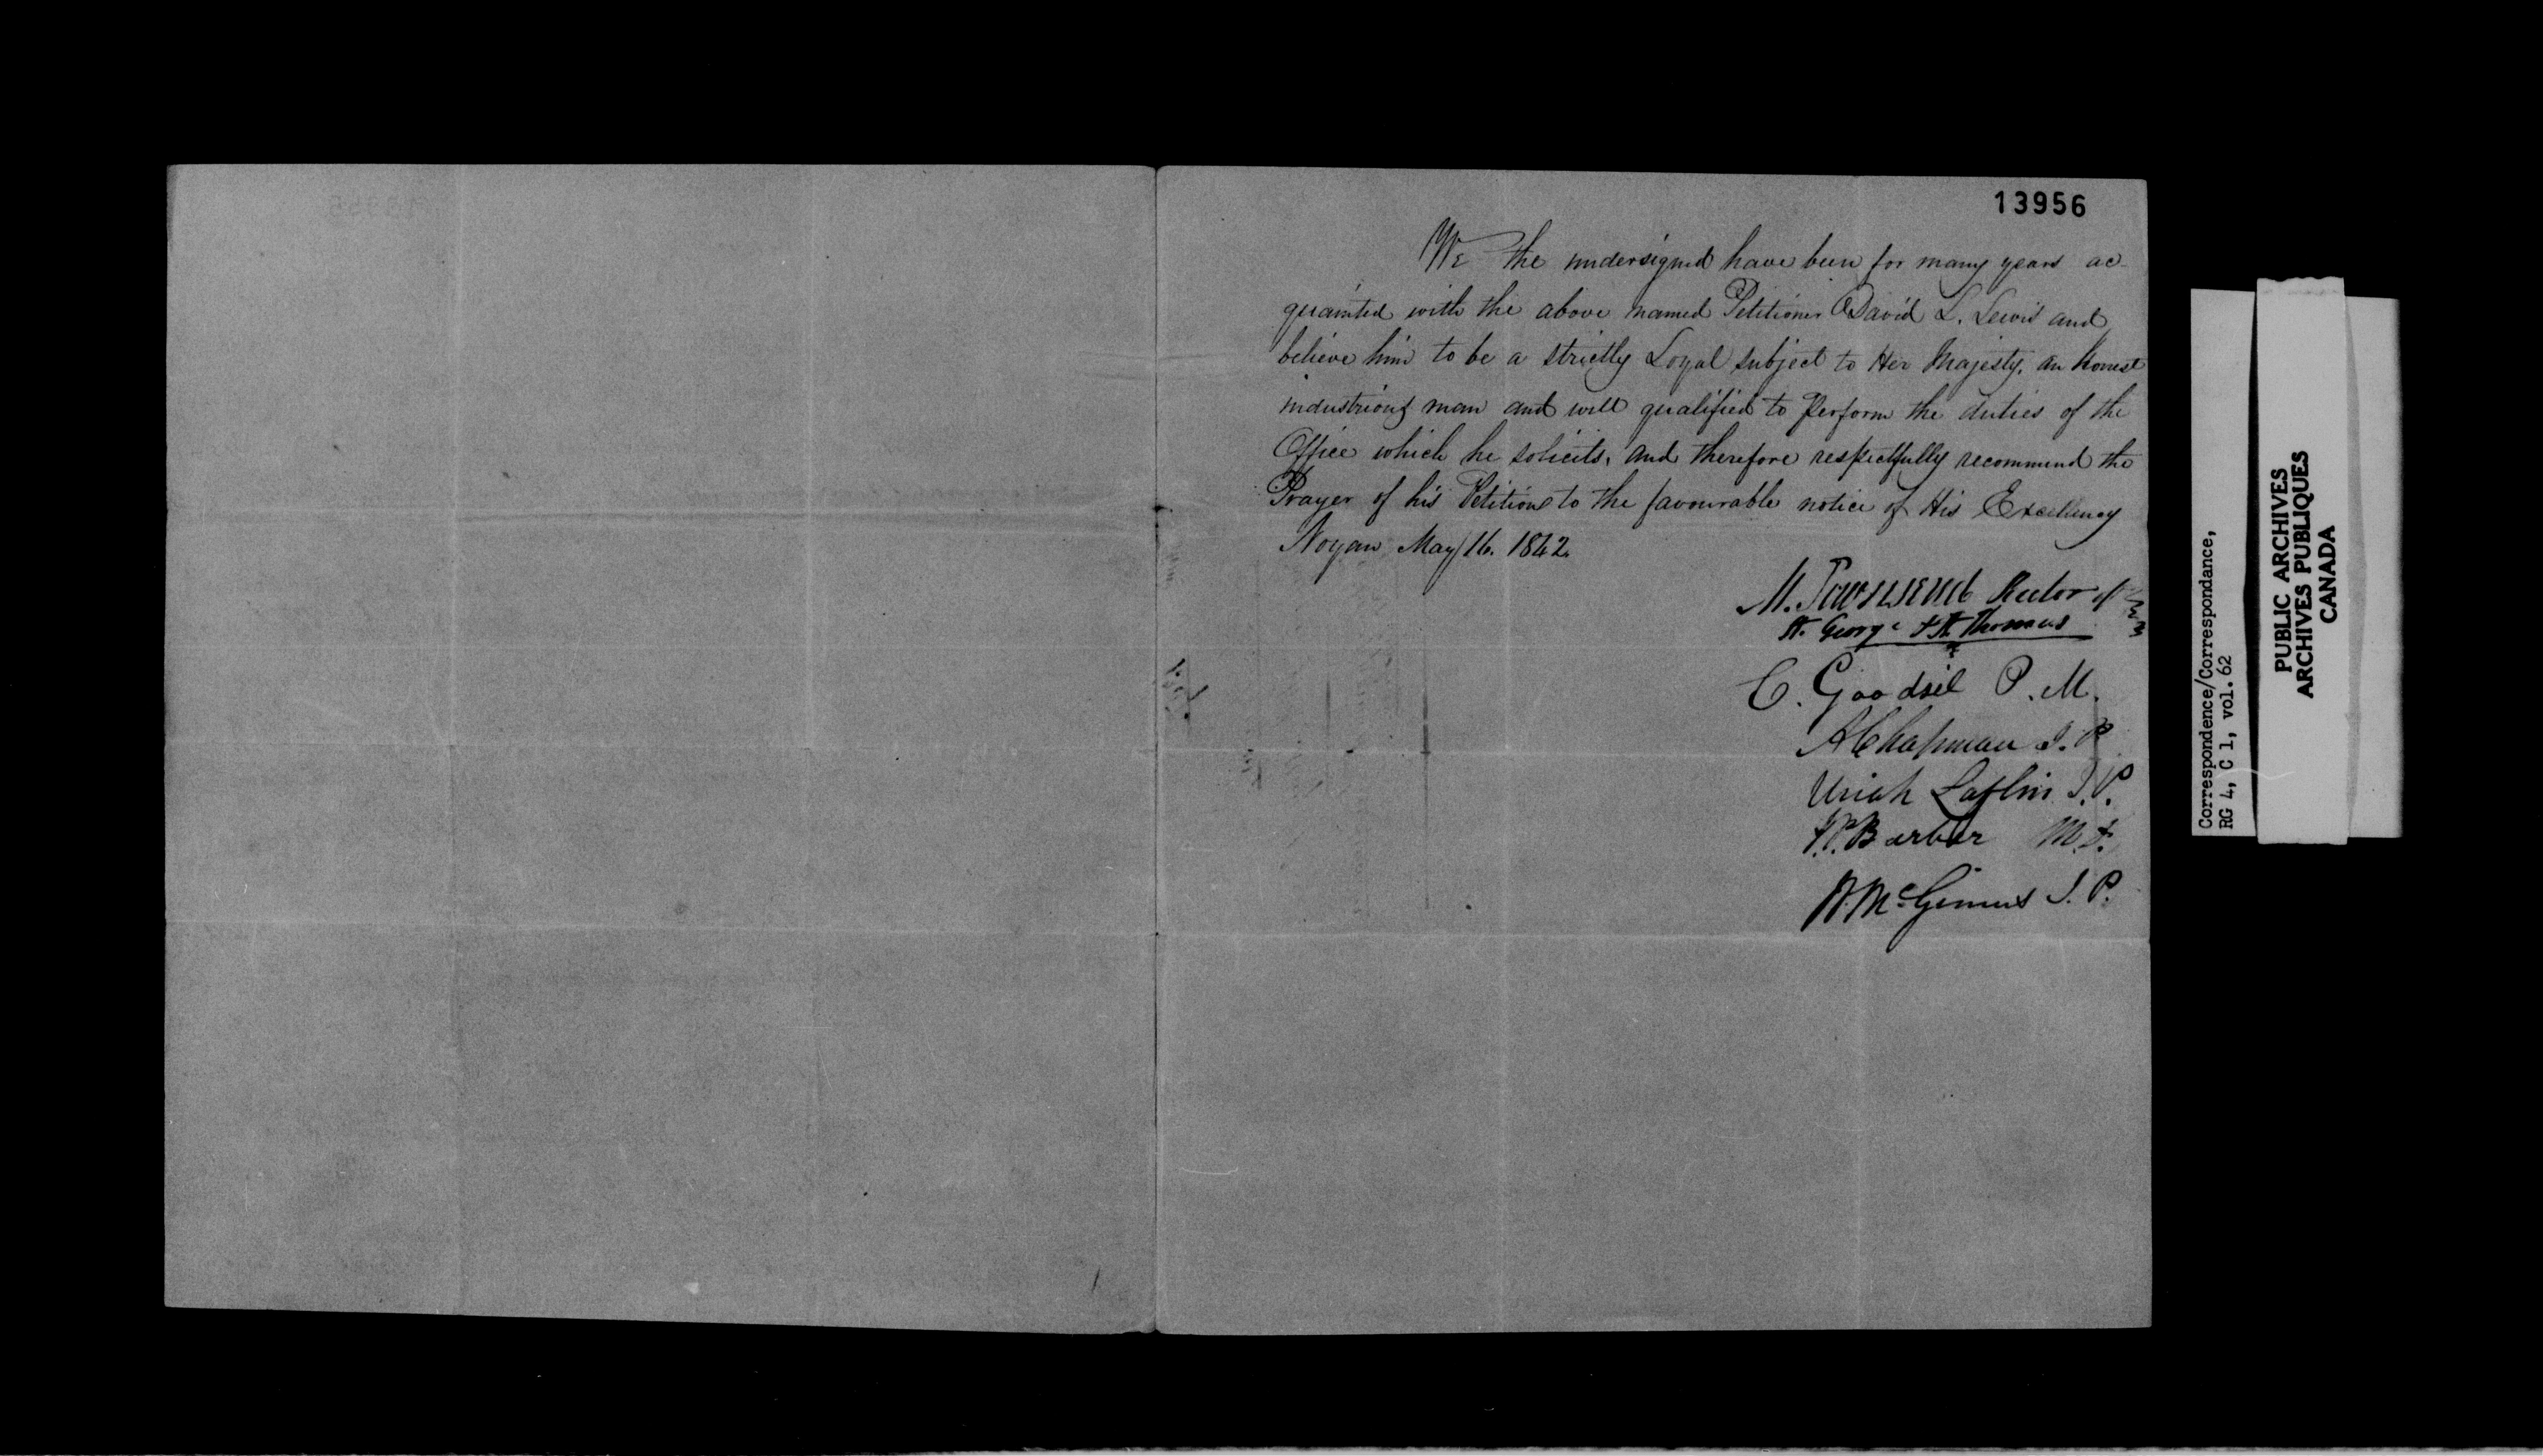 13956
We the undersigned have been for many years ac-
quainted with the above named Petitioner David L. Lewis and
believe him to be a strictly Loyal subject to Her Majesty, an honest
industrious man and well qualified to perform the duties of the
Office which he solicits, and therefore respectfully recommend the
Prayer of his Petition to the favourable notice of His Excellency
Noyan May 16. 1842.
M. Townsend Rector of
St. George & St Thomas
C. Goodsil P. M.
A Chapman J. P.
Uriah Laflin J. P.
Barber
McGinnis J. P.
Correspondence/Correspondance,
RG 4, C 1, vol. 62
PUBLIC ARCHIVES
ARCHIVES PUBLIQUES
CANADA